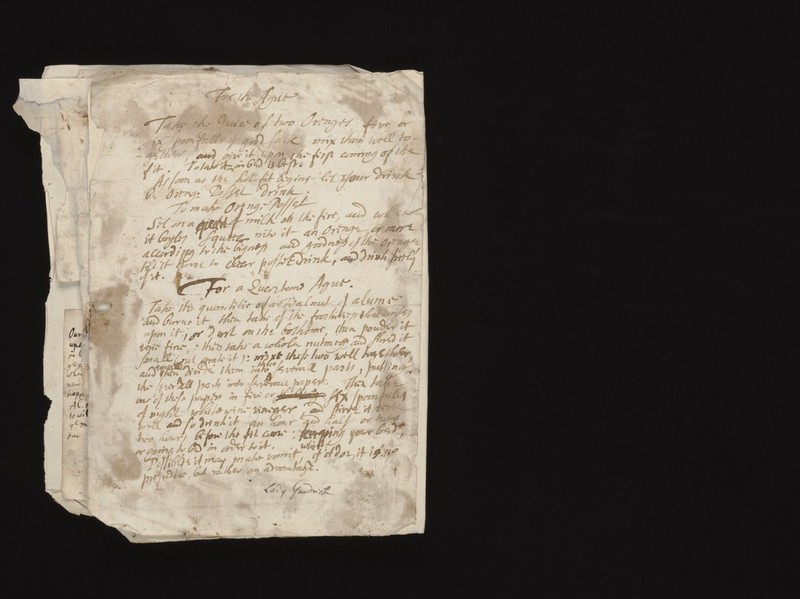 For the Ague
Take the Juice of two Orenges five or
six spoonfulls of good sack mix them well to
gether, and give it upon the first coming of the
fit. To take it in bed is best.
As soon as the hot fit begins let your drink
be Orenge Posset drink.
To make Orenge Posset
Set on a quart of milk on the fire, and when
it boyles squeeze into it an Orenge or more
according to the bigness and goodness of the Orange
till it turne to cleer posset drink, and drink freely
of it.
For a Quartane Ague.
Take the quantitie of a walnut of alume
and burne it then take of the
upon it, or on the bothome, then powder it
very fine, then take a whole nutmeg and
small (not grate it): mixe these two well together,
and then divide them into severall parts, putting
the severall parts into severall papers. Then take
one of these papers in five or six spoonfulls
of right white wine vineger, and stirre it very
well and so drink it an hour and half or
two hours before the fit come keeping your bed,
or going to bed in order to it.
Possible it may make vomit which if it doe, it is no
prejudice but rather an advantage.
Lady